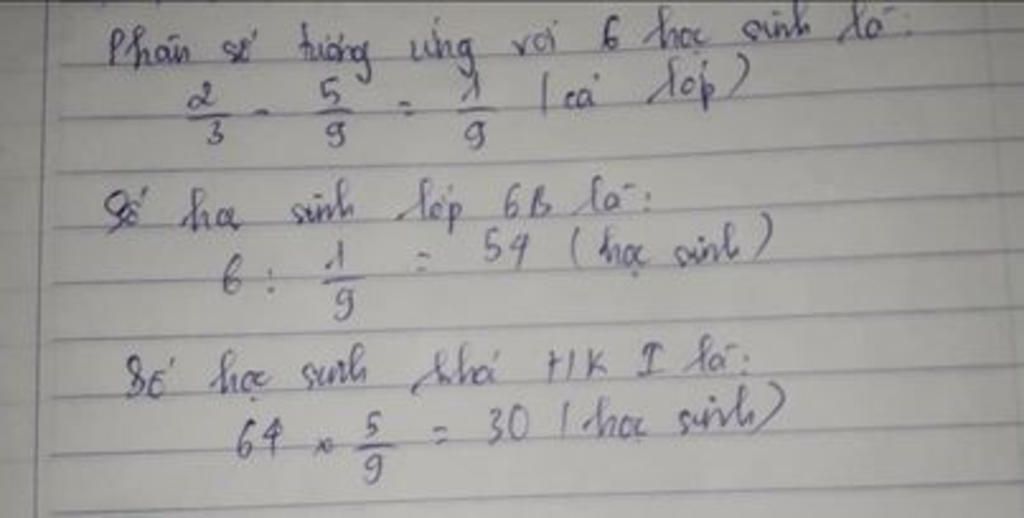 Phân số tương ứng với 6 học sinh là:
2/3 - 5/9 = 1/9 (cả lớp)
Số học sinh lớp 6B là:
6 : 1/9 = 54 (học sinh)
Số học sinh khá HK I là:
64 x 5/9 = 30 (học sinh)